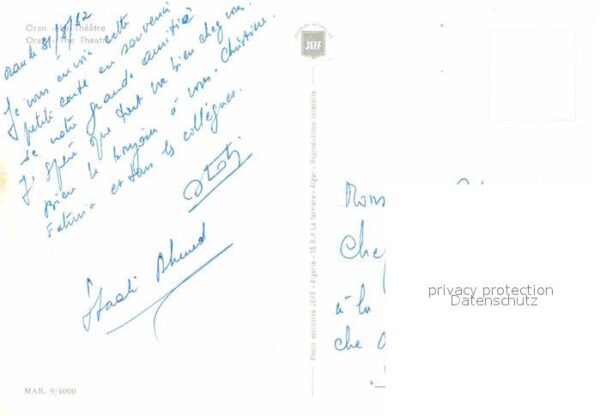 Oran - Le Théâtre
Oran - The Theatre
Oran le 31/8/82
Je vous envoie cette
petite carte en souvenir
de notre grande amitié
J'espère que tout va bien chez vous.
Bien le bonjour à vous. Christine.
Fatima et tous les collègues.
Ahmed
MAR. 9/4000
JEFF
Photo exclusive JEFF - Algérie - 15 R.A La ferriere - Alger - Reproduction Interdite
Mons
Che
à la
che
privacy protection
Datenschutz